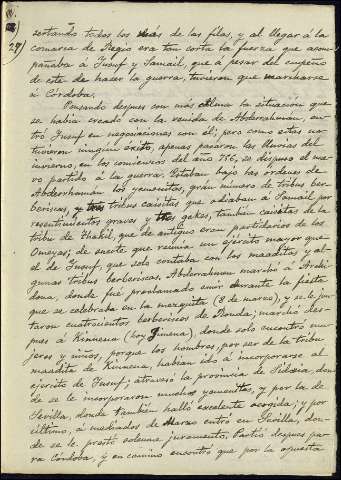 27)
sertando todos los más de las filas, y al llegar á la
comarca de Regio era tan corta la fuerza que acom-
pañaba á Jusuf y Samail, que á pesar del empeño
de este de hacer la guerra, tuvieron que marcharse
á Córdoba.
Pensando despues con más calma la situación que
se habia creado con la venida de Abderrahman, en-
tró Jusuf en negociaciones con él; pero como estas no
tuvieron ningún éxito, apenas pasaron las lluvias del
invierno, en los comienzos del año 756, se dispuso el nue-
vo partido á la guerra. Estaban bajo las órdenes de
Abderrhaman los yemenitas, gran número de tribus ber-
beriscas, y tres tribus caisitas que odiaban á Samail por
resentimientos graves y tres gekes, tambien caisitas de la
tribu de Thakif, que de antiguo eran partidarios de los
Omeyas; de suerte que reunia un ejército mayor que
el de Jusuf, que solo contaba con los maaditas y al-
gunas tribus berberiscas. Abderrahman marchó á Archi-
dona, donde fué proclamado emir durante la fiesta
que se celebraba en la mezquita (8 de marzo), y se le jun-
taron cuatrocientos berberiscos de Ronda; marchó des-
pues á Kinnena (hoy Jimena), donde solo encontró mu-
jeres y niños, porque los hombres, por ser de la tribu
maadita de Kinnena, habian ido á incorporarse al
ejercito de Jusuf; atravesó la provincia de Sidonia, don-
de se le incorporaron muchos yemenitas, y por la de
Sevilla, donde tambien halló excelente acogida; y por
último, á mediados de Marzo entró en Sevilla, don-
de se le prestó solemne juramento. Partió despues pa-
ra Córdoba, y en camino encontró que por la opuesta